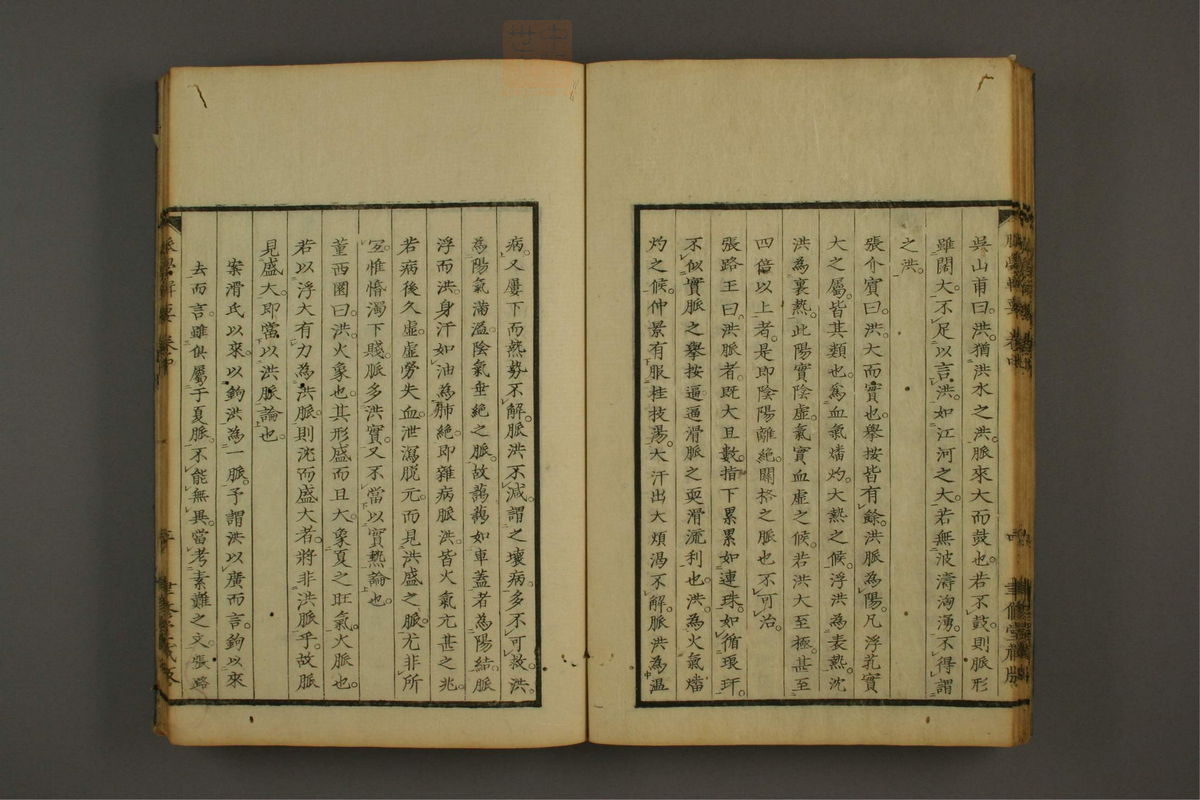 吳山甫曰。洪猶洪水之洪。脈來大而鼓也。若不鼓。則脈形
雖闊大。不足以言洪。如江河之大。若無波濤洶湧。不得謂
之洪。
張介賓曰。洪。大而實也。舉按皆有餘。洪脈為陽。凡浮芤實
大之屬。皆其類也。為血氣燔灼。大熱之候。浮洪為表熱。沈
洪為裏熱。此陽實陰虛。氣實血虛之候。若洪大至極。甚至
四倍以上者。是即陰陽離絕。關格之脈也。不可治。
張路王曰。洪脈者。既大且數。指下累累如連珠。如循琅玕。
不似實脈之舉按逼逼。滑脈之耎滑流利也。洪為火氣燔
灼之候。仲景有服桂枝湯。大汗出大煩渴不解。脈洪為溫
病。又屢下而熱勢不解。脈洪不減。謂之壞病。多不可救。洪
為陽氣滿溢。陰氣垂絕之脈。故藹藹如車蓋者。為陽結。脈
浮而洪。身汗如油。為肺絕。即雜病脈洪。皆火氣亢甚之兆。
若病後久虛。虛勞失血。泄瀉脫元。而見洪盛之脈。尤非所
宜。惟惛濁下賤。脈多洪實。又不當以實熱論也。
董西園曰。洪。火象也。其形盛而且大。象夏之旺氣。火脈也。
若以浮大有力為洪脈。則沈而盛大者。將非洪脈乎。故脈
見盛大。即當以洪脈論也。
案滑氏以來。以鉤洪為一脈。予謂洪以廣而言。鉤以來
去而言。雖俱屬于夏脈。不能無異。當考素難之文。張路